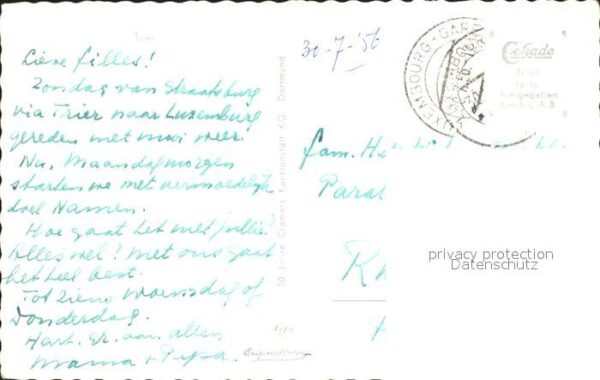 Trier
Lieve filles!
Zondag van Straatsburg
via Trier naar Luxemburg
gereden met mooi weer.
Nu, Maandagmorgen
starten we met vermoedelijk
doel Namen.
Hoe gaat het met jullie?
Alles wel? Met ons gaat
het heel best.
Tot ziens woensdag of
Donderdag.
Hart. Gr. aan allen
Mama + Papa.
50 Jahre Cramers Kunstanstalt KG. Dortmund
30-7-'56
LUXEMBOURG-GARE
Cekade
durch C.A.B.
fam.
privacy protection
Datenschutz